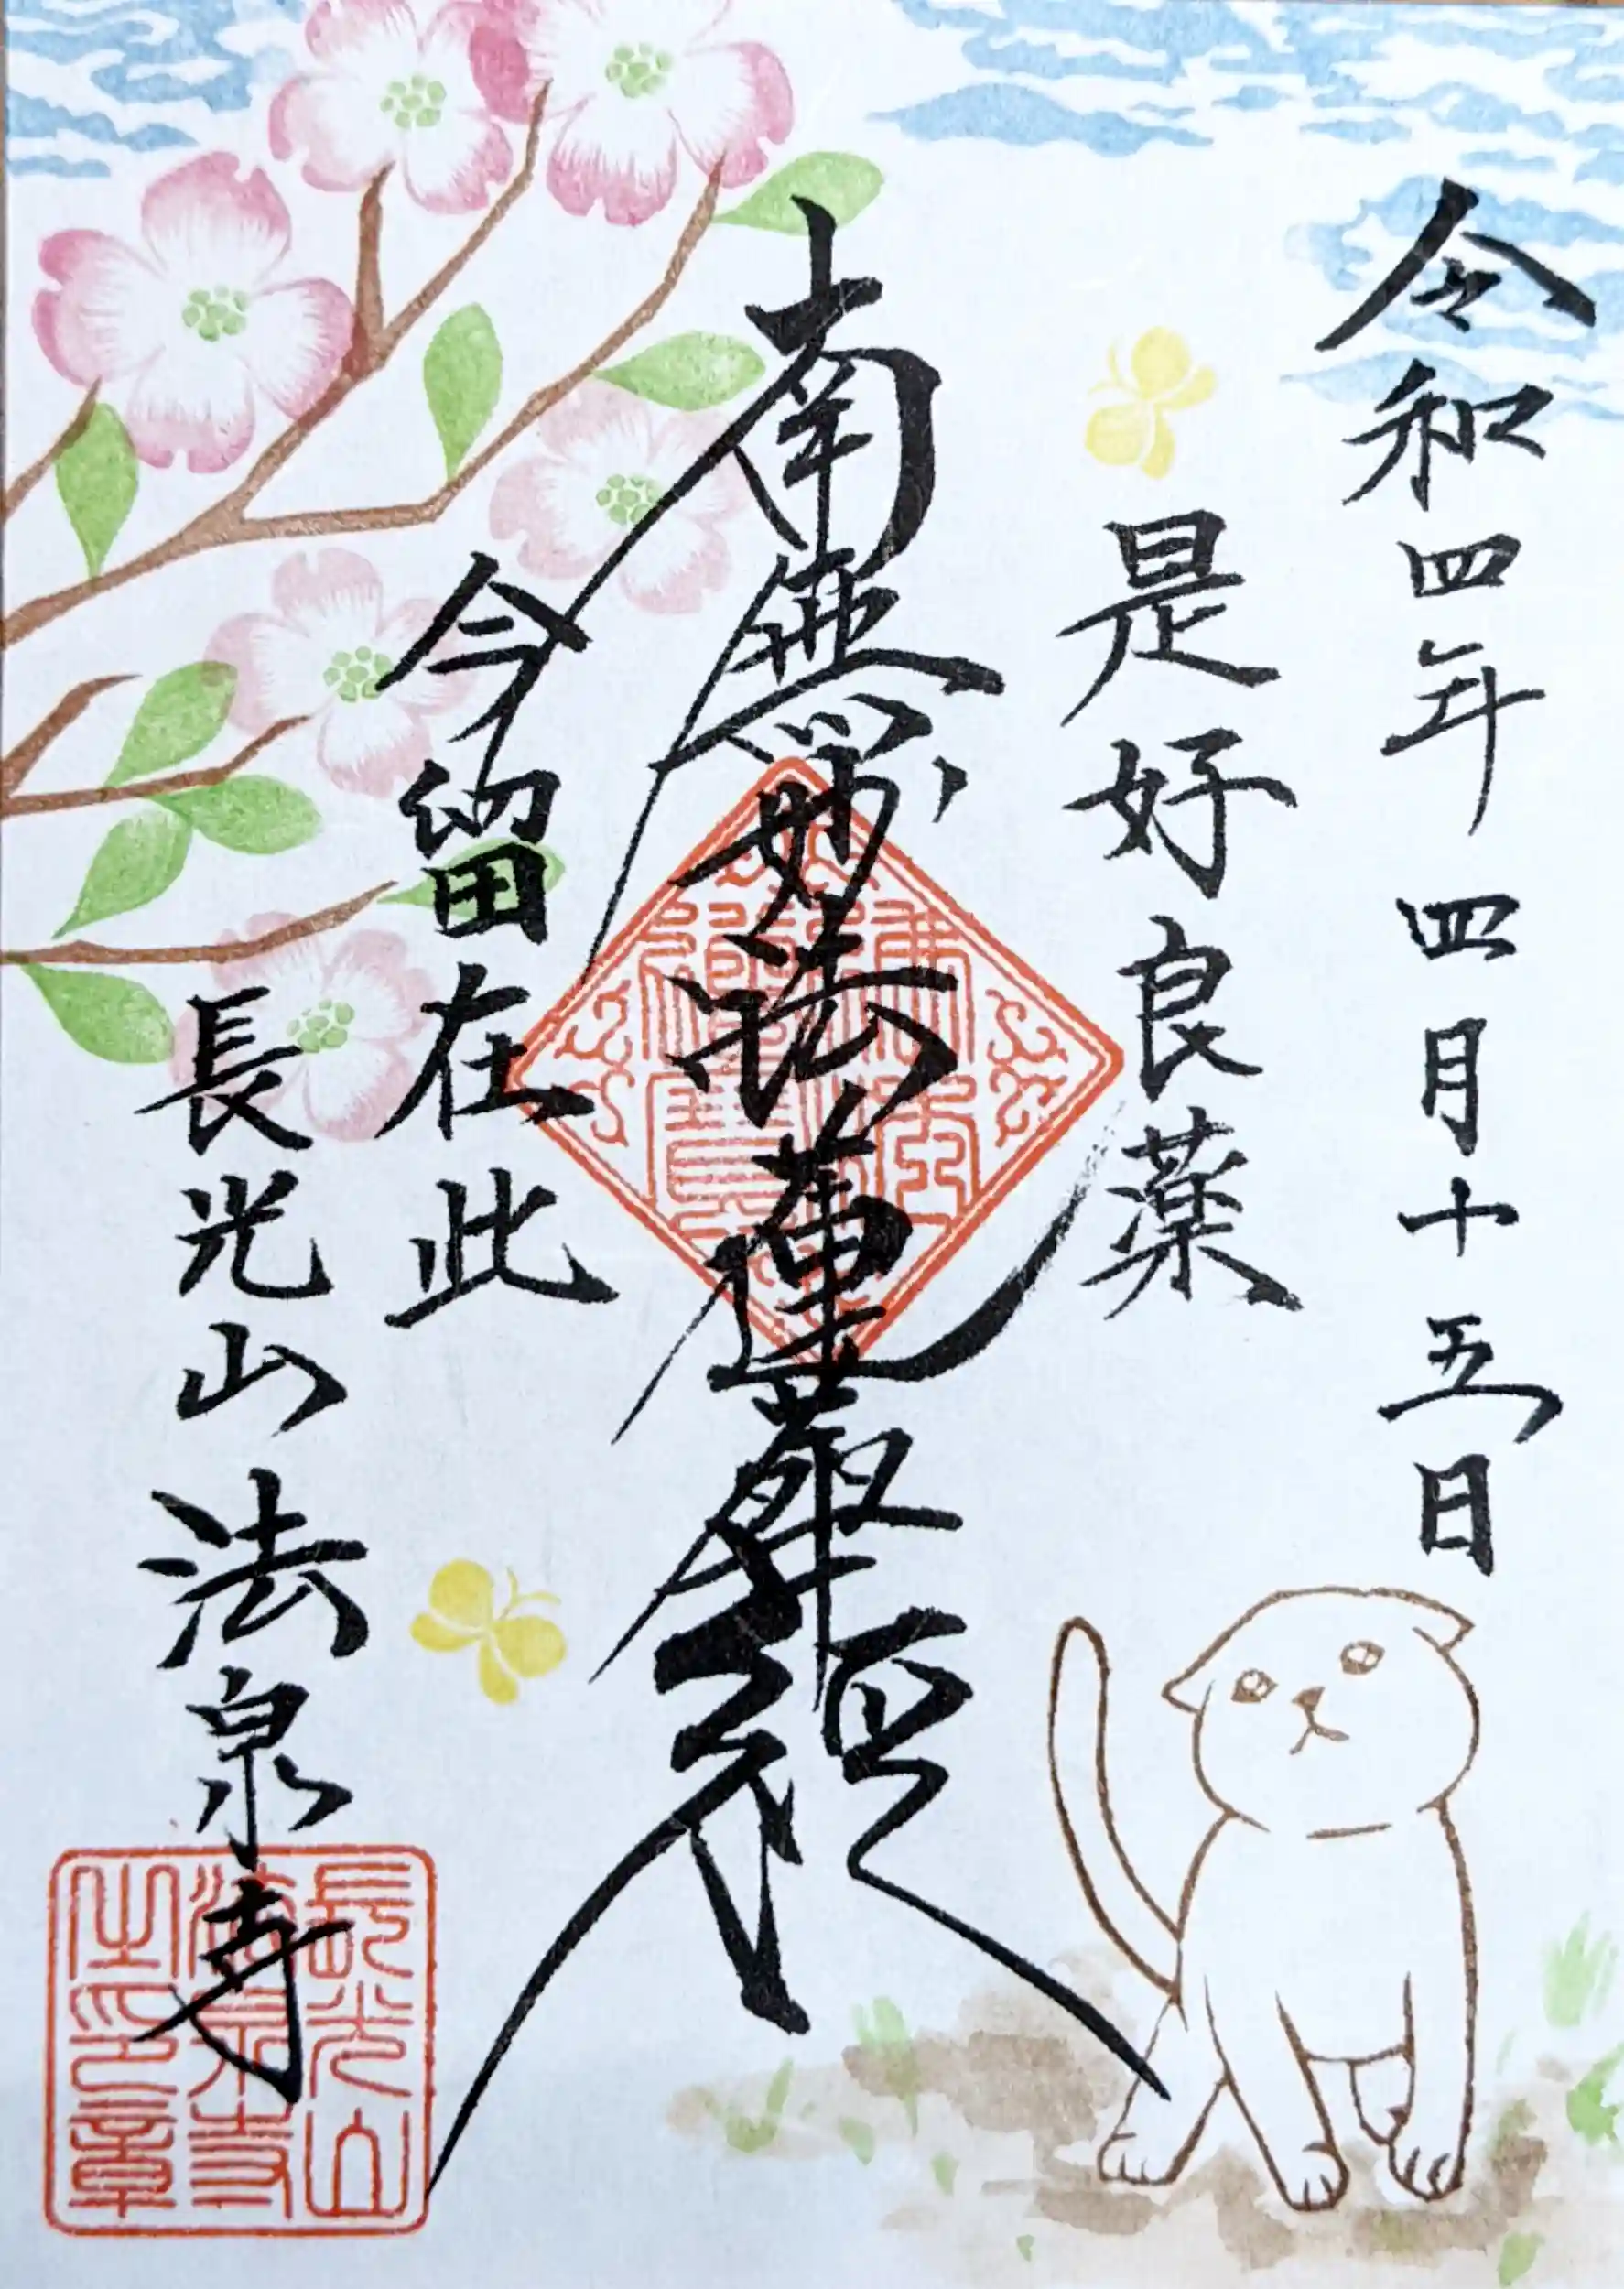 令和四年四月十五日
是好良薬
南無妙法蓮華経
今留在此
長光山法泉寺
長光山
法泉寺
之印章